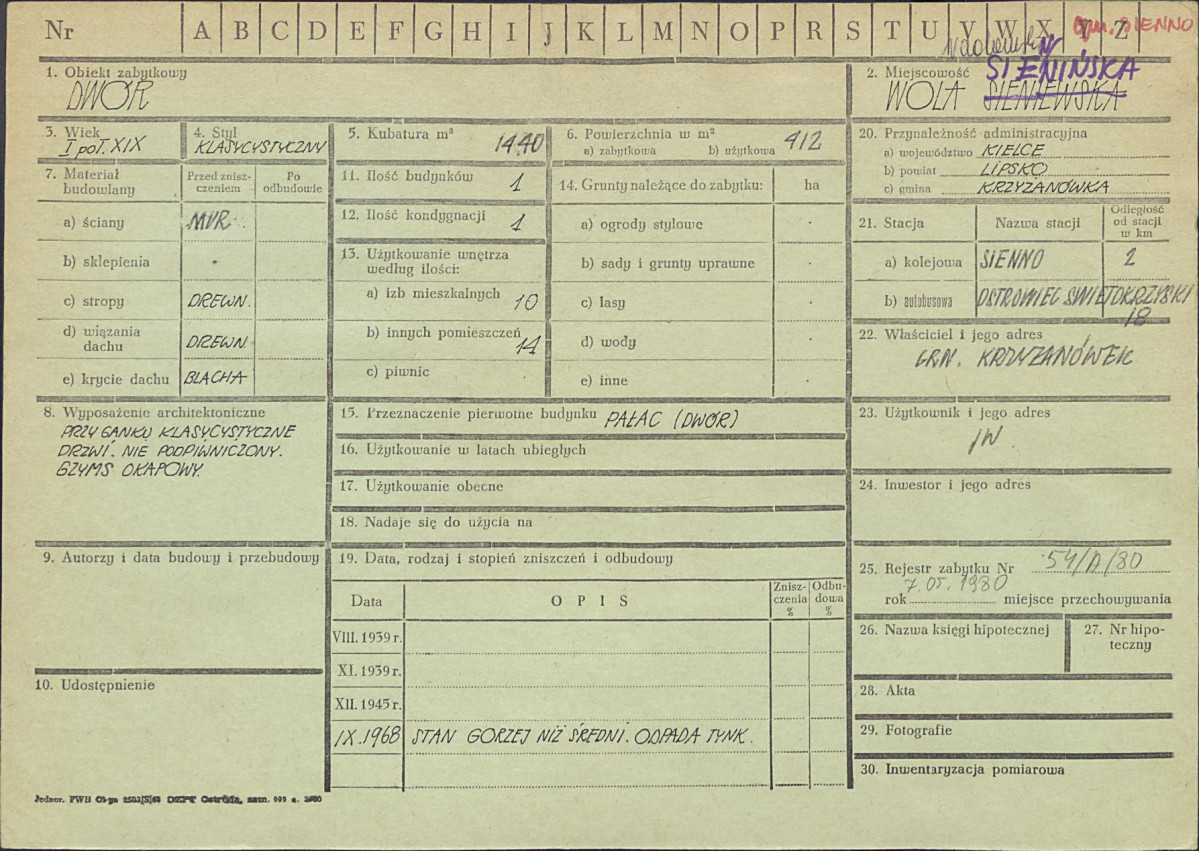 Nr A B C D E F G H I J K L M N O P R S T U V W X Y Z
gm. SIENNO
1. Obiekt zabytkowy
DWÓR
2. Miejscowość
SIENIŃSKA
WOLA SIENIEWSKA
3. Wiek
I poł. XIX
4. Styl
KLASYCYSTYCZNY
5. Kubatura m³
1440
6. Powierzchnia w m²
a) zabytkowa b) użytkowa 412
7. Materiał budowlany
Przed zniszczeniem
Po odbudowie
a) ściany MUR.
b) sklepienia -
c) stropy DREWN.
d) wiązania dachu DREWN.
e) krycie dachu BLACHA
8. Wyposażenie architektoniczne
PRZY GANKU KLASYCYSTYCZNE
DRZWI. NIE PODPIWNICZONY.
GZYMS OKAPOWY.
9. Autorzy i data budowy i przebudowy
10. Udostępnienie
11. Ilość budynków 1
12. Ilość kondygnacji 1
13. Użytkowanie wnętrza
według ilości:
a) izb mieszkalnych 10
b) innych pomieszczeń 14
c) piwnic -
14. Grunty należące do zabytku: ha
a) ogrody stylowe -
b) sady i grunty uprawne -
c) lasy -
d) wody -
e) inne -
15. Przeznaczenie pierwotne budynku PAŁAC (DWÓR)
16. Użytkowanie w latach ubiegłych
17. Użytkowanie obecne
18. Nadaje się do użycia na
19. Data, rodzaj i stopień zniszczeń i odbudowy
Data
OPIS
Zniszczenia %
Odbudowa %
VIII. 1939 r.
XI. 1939 r.
XII. 1945 r.
IX.1968 STAN GORZEJ NIŻ ŚREDNI. ODPADA TYNK.
20. Przynależność administracyjna
a) województwo KIELCE
b) powiat LIPSKO
c) gmina KRZYZANÓWKA
21. Stacja
Nazwa stacji
Odległość od stacji w km
a) kolejowa SIENNO 2
b) autobusowa OSTROWIEC ŚWIĘTOKRZYSKI
18
22. Właściciel i jego adres
GRN. KRZYZANÓWEK
23. Użytkownik i jego adres
JW.
24. Inwestor i jego adres
25. Rejestr zabytku Nr 54/A/80
7.05.1980
rok miejsce przechowywania
26. Nazwa księgi hipotecznej
27. Nr hipoteczny
28. Akta
29. Fotografie
30. Inwentaryzacja pomiarowa